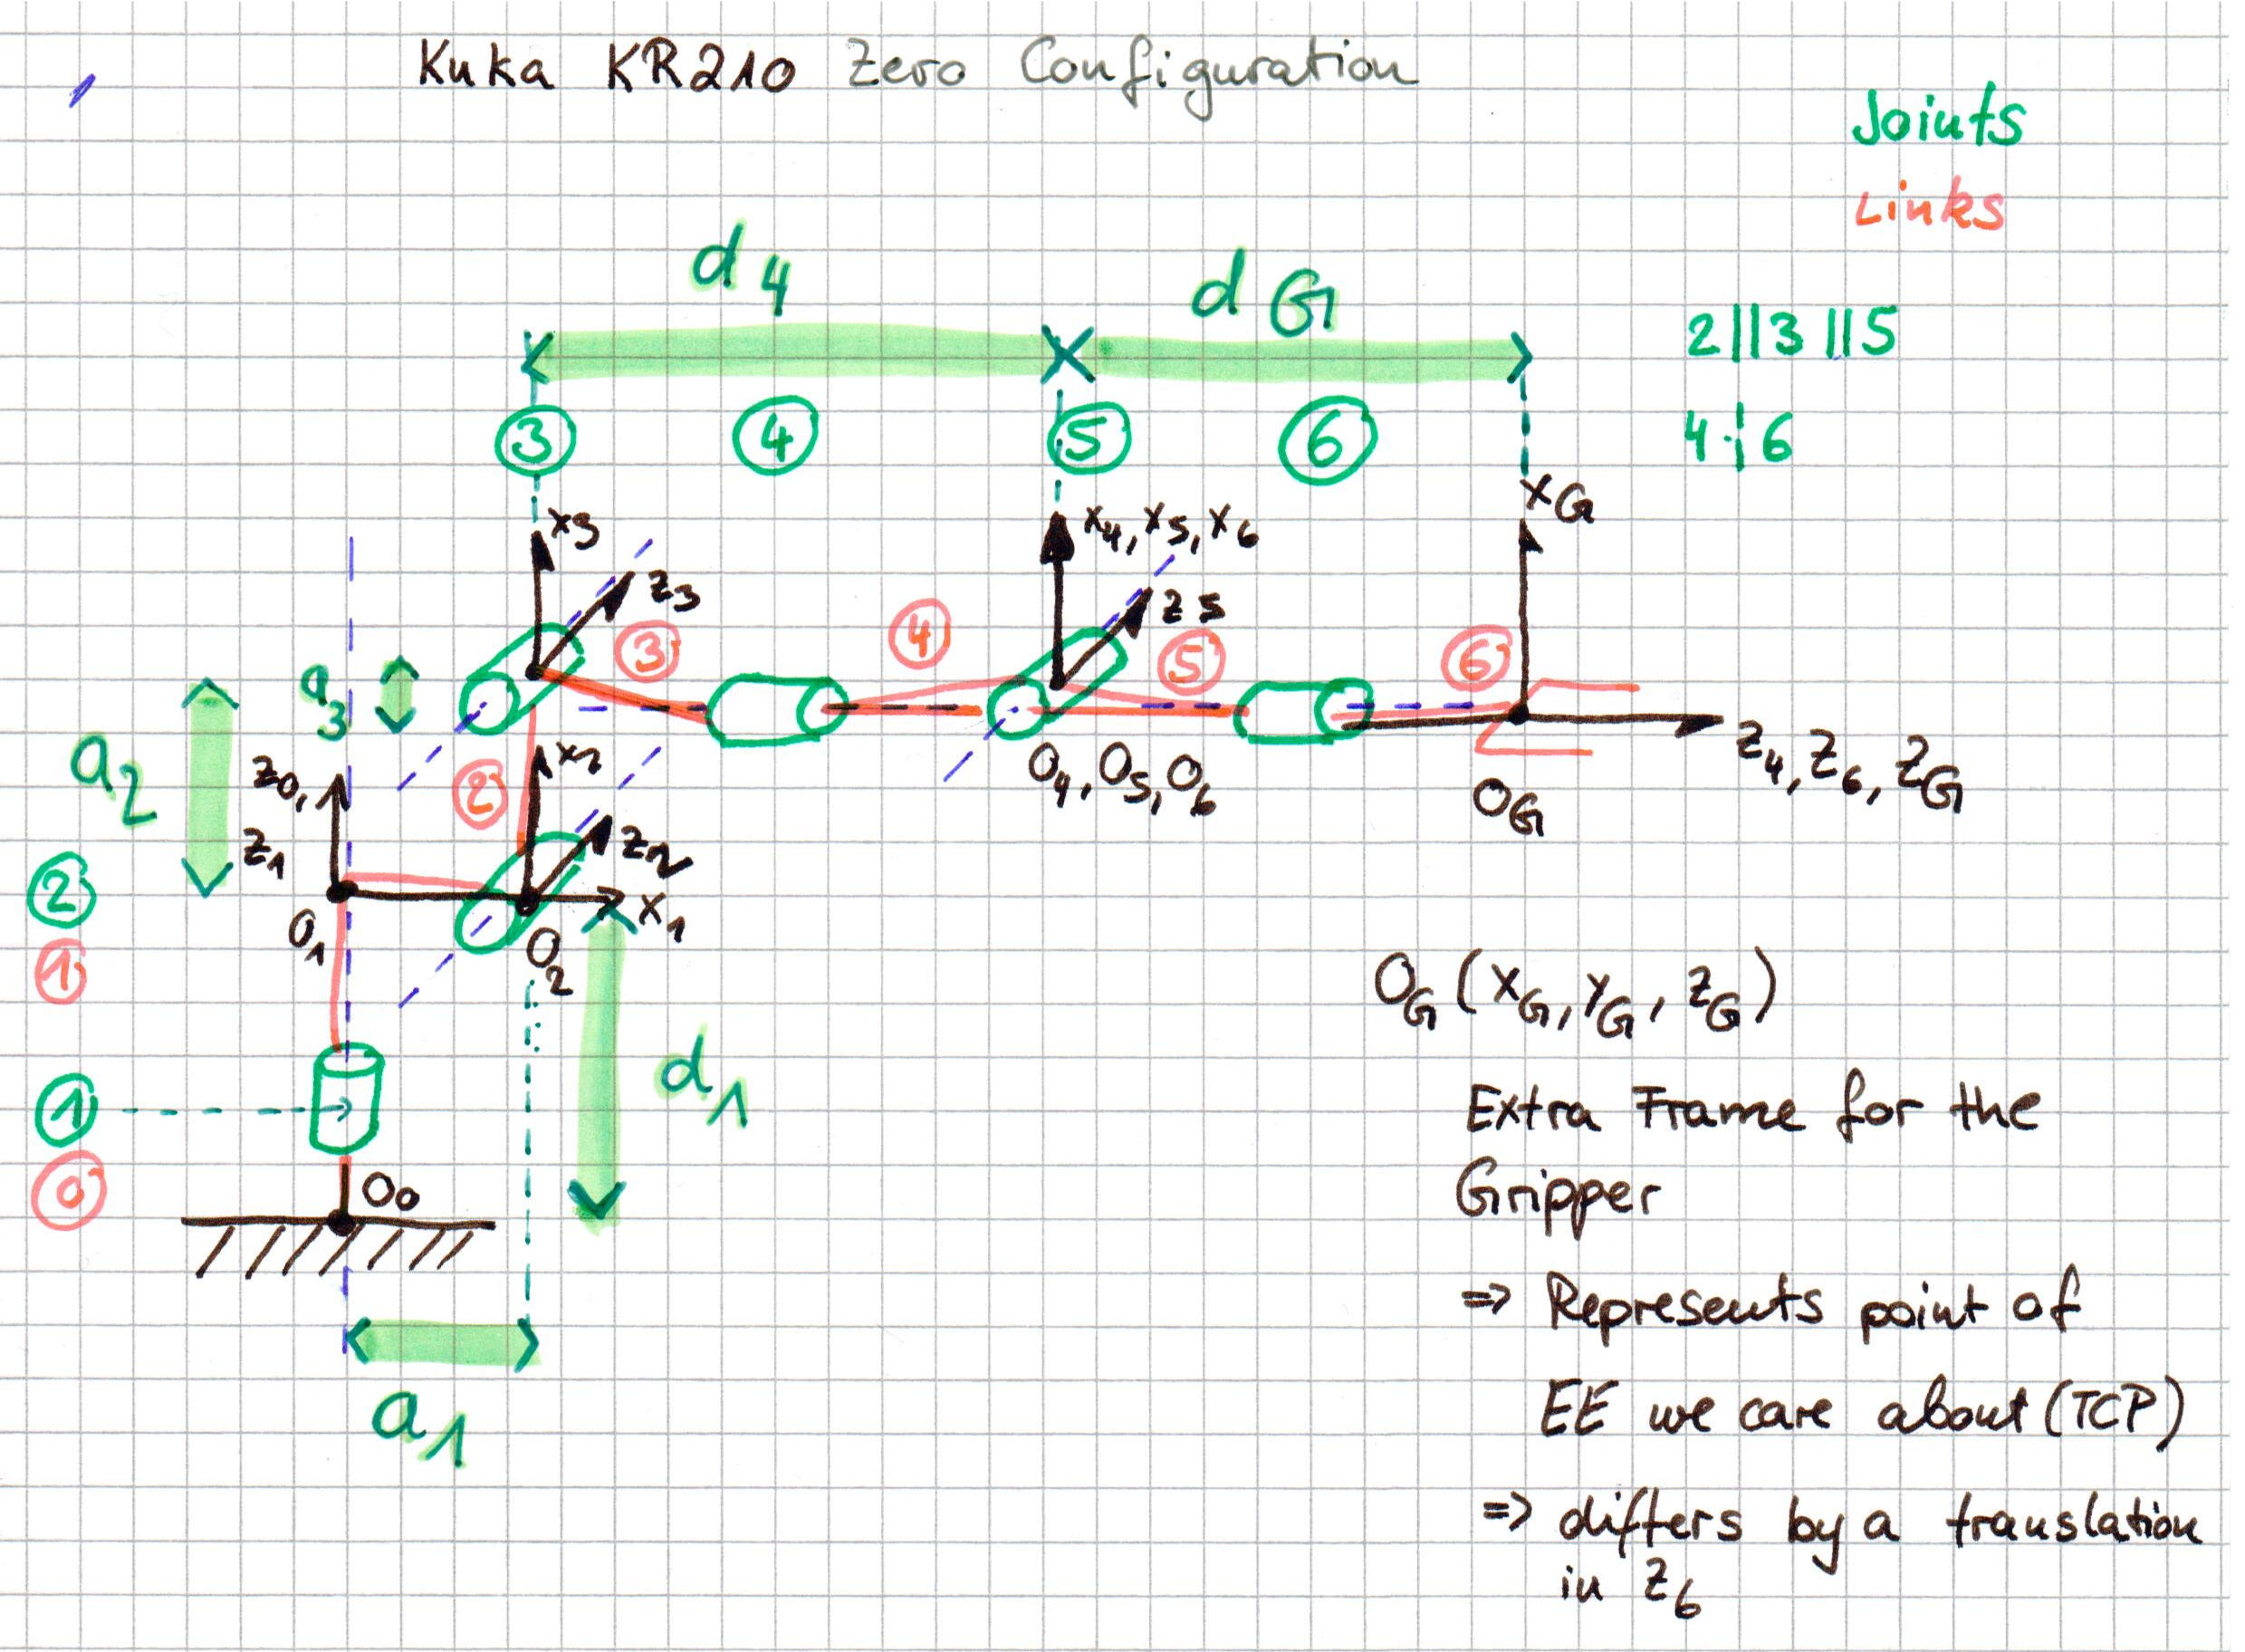 Kuka KR210 Zero Configuration
Joints
Links
d4
dG
2||3||5
3
4
5
6
4 ┆ 6
x3
x4, x5, x6
xG
z3
z5
3
4
5
6
a3
a2
z0,
z1
2
x2
z2
O4, O5, O6
OG
z4, z6, zG
2
1
O1
O2
x1
OG (xG, yG, zG)
d1
1
Extra Frame for the
0
O0
Gripper
=> Represents point of
a1
EE we care about (TCP)
=> differs by a translation
in z6